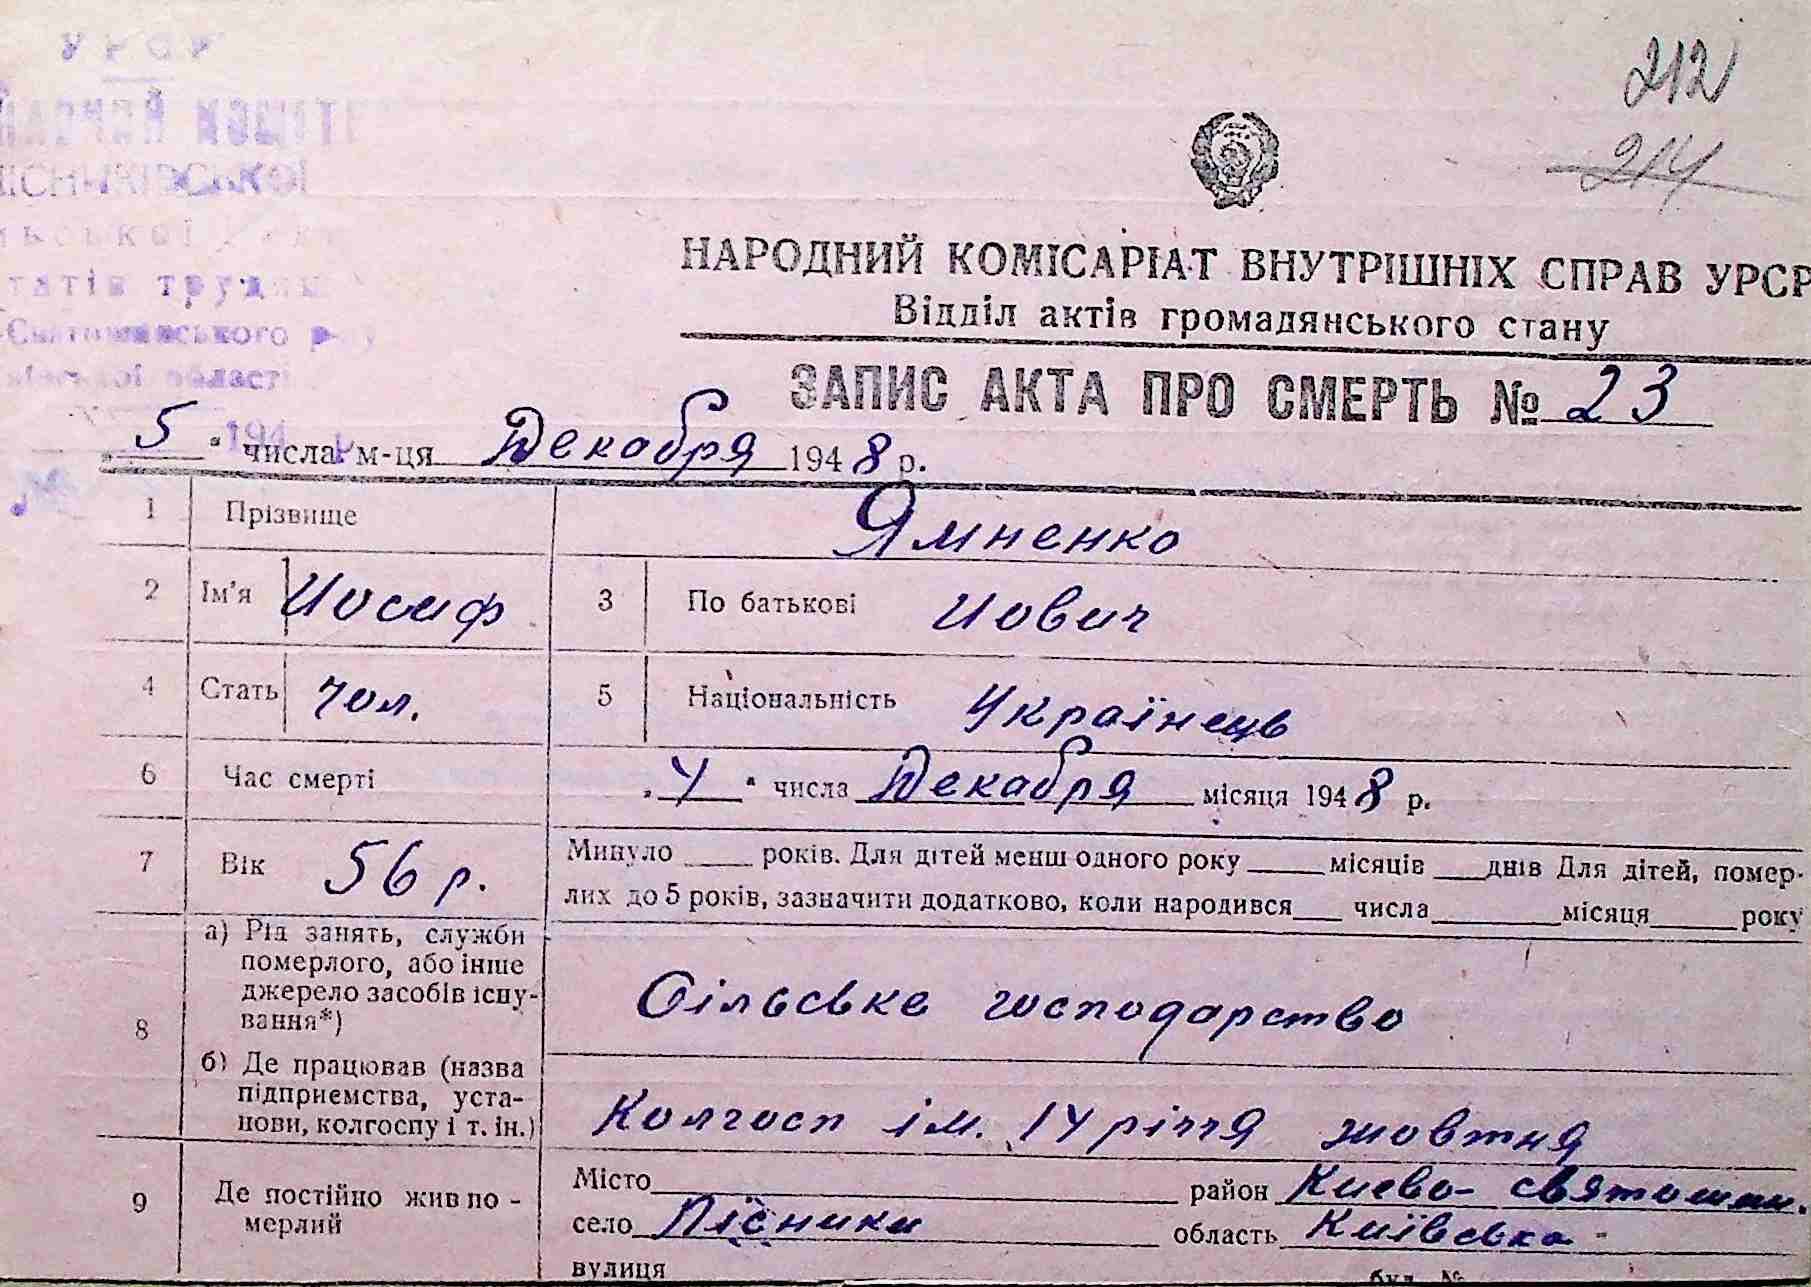 УРСР
212
214
ІСНИКІВСЬКОЇ
НАРОДНИЙ КОМІСАРІАТ ВНУТРІШНІХ СПРАВ УРСР
Відділ актів громадянського стану
області
ЗАПИС АКТА ПРО СМЕРТЬ № 23
5 " числа м-ця Декабря 1948 р.
1 Прізвище Ямненко
2 Ім'я Иосиф 3 По батькові Иович
4 Стать чол. 5 Національність Українець
6 Час смерті „4" числа Декабря місяця 1948 р.
7 Вік 56 р. Минуло ____ років. Для дітей менш одного року ____ місяців ____ днів Для дітей, помер-
лих до 5 років, зазначити додатково, коли народився ____ числа ____ місяця ____ року
8 а) Рід занять, служби
померлого, або інше
джерело засобів існу-
вання*)
Сільське господарство
б) Де працював (назва
підприємства, уста-
нови, колгоспу і т. ін.)
Колгосп ім. 14 річчя жовтня
9 Де постійно жив по-
мерлий
Місто ____ район Киево-святошин.
село Лісники область Київська
вулиця буд. №